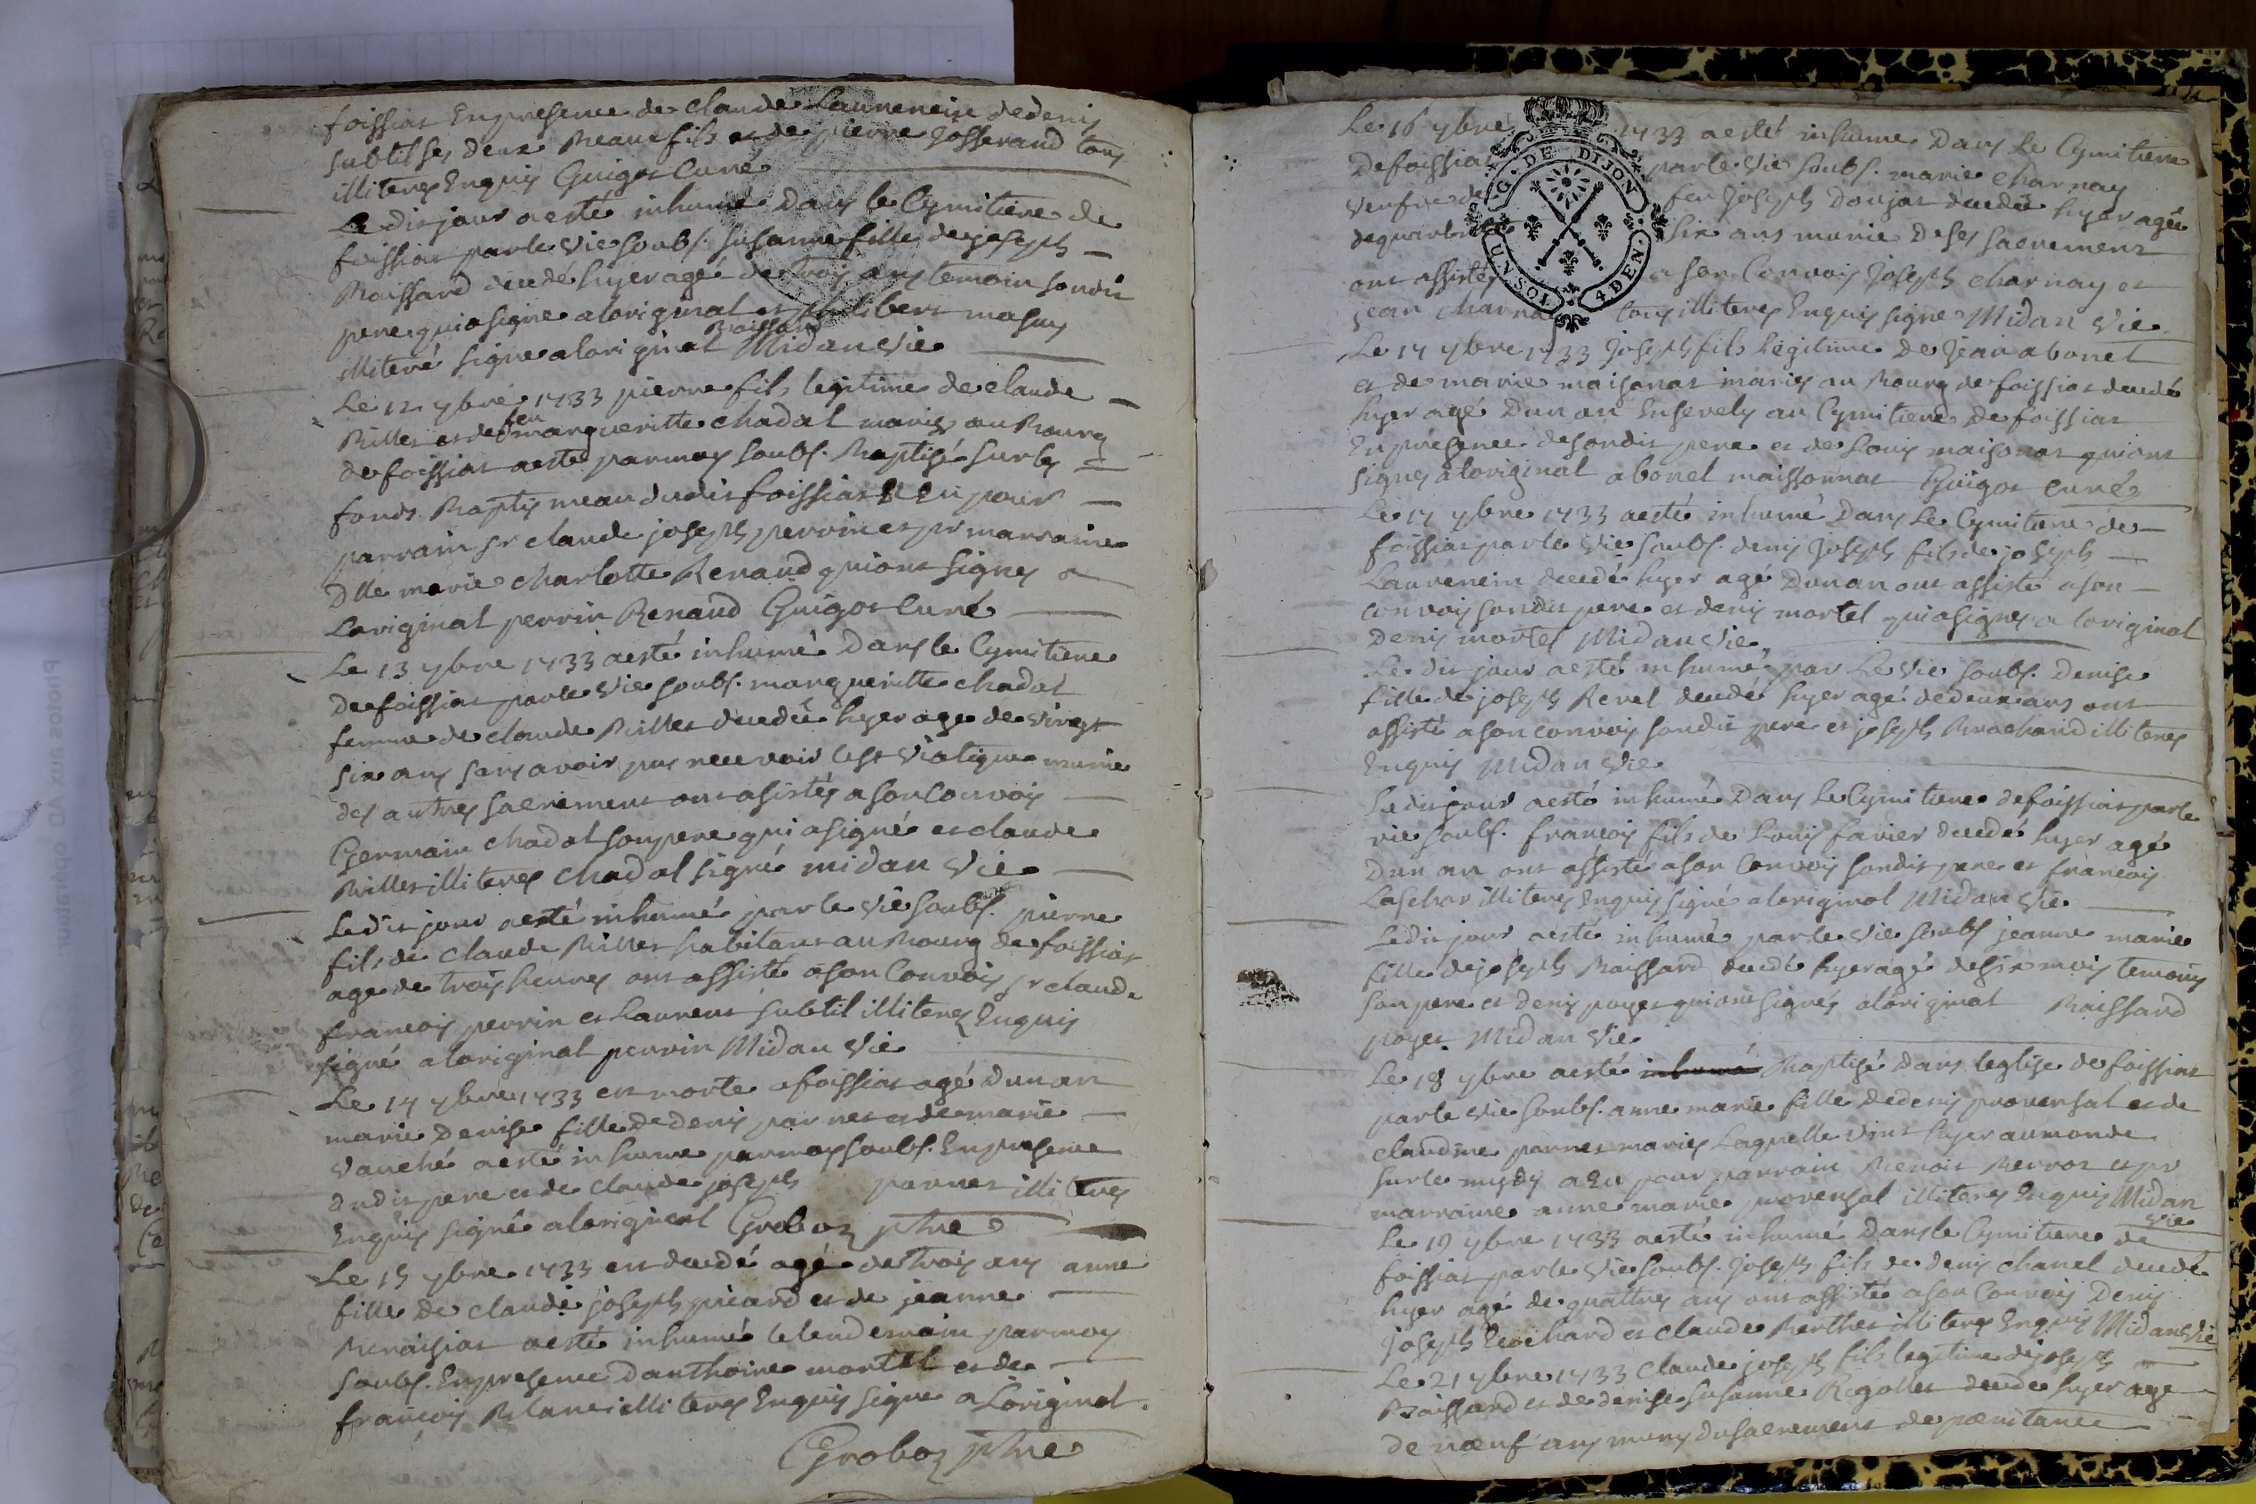 foissiat Enpresence de claude Laurencin dedenis
subtil ses deux Beaux fils et de pierre Josserand tous
illiteres Enquis Guigot Curé
Le dit jour a esté inhumé Dans le Cymitiere de
foissiat par le vic soubs. susanne fille de joseph
Boissard decedé hyer agé de trois ans temoin sondit
pere qui a signe a loriginal et philibert masuy
Boissard
illiteré signe a loriginal Midan vic
Le 12 7bre 1733 pierre fils legitime de claude
feu
Billet et de margueritte chadal mariés au Bourg
de foissiat a esté par moy soubs. Baptisé sur les
fonds Baptismeau dudit foissiat a Eu pour
parrain sr claude joseph perrin et pr marraine
Dlle marie charlotte Renaud qui ont signes a
Loriginal perrin Renaud Guigot Curé
Le 13 7bre 1733 a esté inhumé Dans le Cymitiere
De foissiat par le vic soubs. margueritte chadal
femme de claude Billet decedée hyer agee de vingt
six ans sans avoir pus recevoir le st viatique munie
des autres sacrement ont asistés a son convois
Germain chadal son pere qui a signé et claude
Billet illiteres chadal signé midan vic
Ledit jour a esté inhumé par le vic soubs. pierre
fils de claude Billet habitant au Bourg de foissiat
age de trois heures ont assisté a son Convois sr claude
francois perrin et Laurent subtil illiteres Enquis
signé a loriginal perrin Midan vic
Le 14 7bre 1733 est morte a foissiat agé Dun an
marie Denise fille De denis parnet et de marie
vauché a esté inhume par moy soubs. En presence
Dudit pere et de claude joseph parnet illiteres
Enquis signé a loriginal Groboz ptre
Le 15 7bre 1733 est decedé agé de trois ans anne
fille De claude joseph picard et de jeanne
Benaisiat a esté inhumé le lendemain par moy
soubs. En presence Danthoine mortel et de
françois Blanc illiteres Enquis signe a Loriginal.
Groboz ptre
Le 16 7bre 1733 a esté inhume Dans Le Cymitiere
De foissiat par le vic soubs. marie charnay
veufve de feu Joseph Donjat decedée hyer agée
de quarante six ans munie De ses sacremens
ont assistés a son Convois Joseph charnay et
jean charnay tous illiteres Enquis signe Midan vic
G. DE DIJON
UN SOL 4 DEN.
Le 17 7bre 1733 Joseph fils legitime De jean abonel
et de marie maisonat mariés au Bourg de foissiat decedé
hyer agé Dun an Ensevely au Cymitiere De foissiat
En présence de sondit pere et de Louis maisonat qui ont
signes a loriginal abonel maissonnat Guigot curé
Le 17 7bre 1733 a esté inhumé Dans Le Cymitiere de
foissiat par le vic soubs. denis Joseph fils de joseph
Laurencin decedé hyer agé Dun an ont assisté a son
convois sondit pere et denis mortel qui a signes a loriginal
Denis mortel Midan vic
Le dit jour a esté inhumé par Le vic soubs. Denise
fille de joseph Revel decedé hyer agé de deux ans ont
assisté a son convois sondit pere et joseph Brochand illiteres
Enquis Midan vic
Ledit jour a esté inhumé Dans Le Cymitiere de foissiat par le
vic soubs. françois fils de Louis favier decedé hyer agé
Dun an ont assisté a son Convois sondit pere et françois
Laschar illiteres Enquis signé a loriginal Midan vic
Ledit jour a esté inhumé par le vic soubs jeanne marie
fille de joseph Boissard decedé hyer agé de six mois temoins
son pere et Denis poyet qui ont signes a loriginal Boissard
poyet Midan vic
Le 18 7bre a esté inhumé Baptisé Dans leglise de foissiat
par le vic soubs. anne marie fille De denis provensal et de
claudine parnet mariés Laquelle vint hyer au monde
sur le midy a Eu pour parrain Benoit Berrot et pr
marraine anne marie provensal illiteres Enquis Midan
vic
Le 19 7bre 1733 a esté inhumé Dans le Cymitiere de
foissiat par le vic soubs. Joseph fils de Denis chanel decedé
hyer agé de quattres ans ont assisté a son Convois Denis
Joseph Ecochard et claude Berthet illiteres Enquis Midan vic
Le 21 7bre 1733 Claude joseph fils legitime de joseph
Boissard et de denise susanne Rigollet decede hyer age
de nœuf ans munys du sacrement de pœnitance